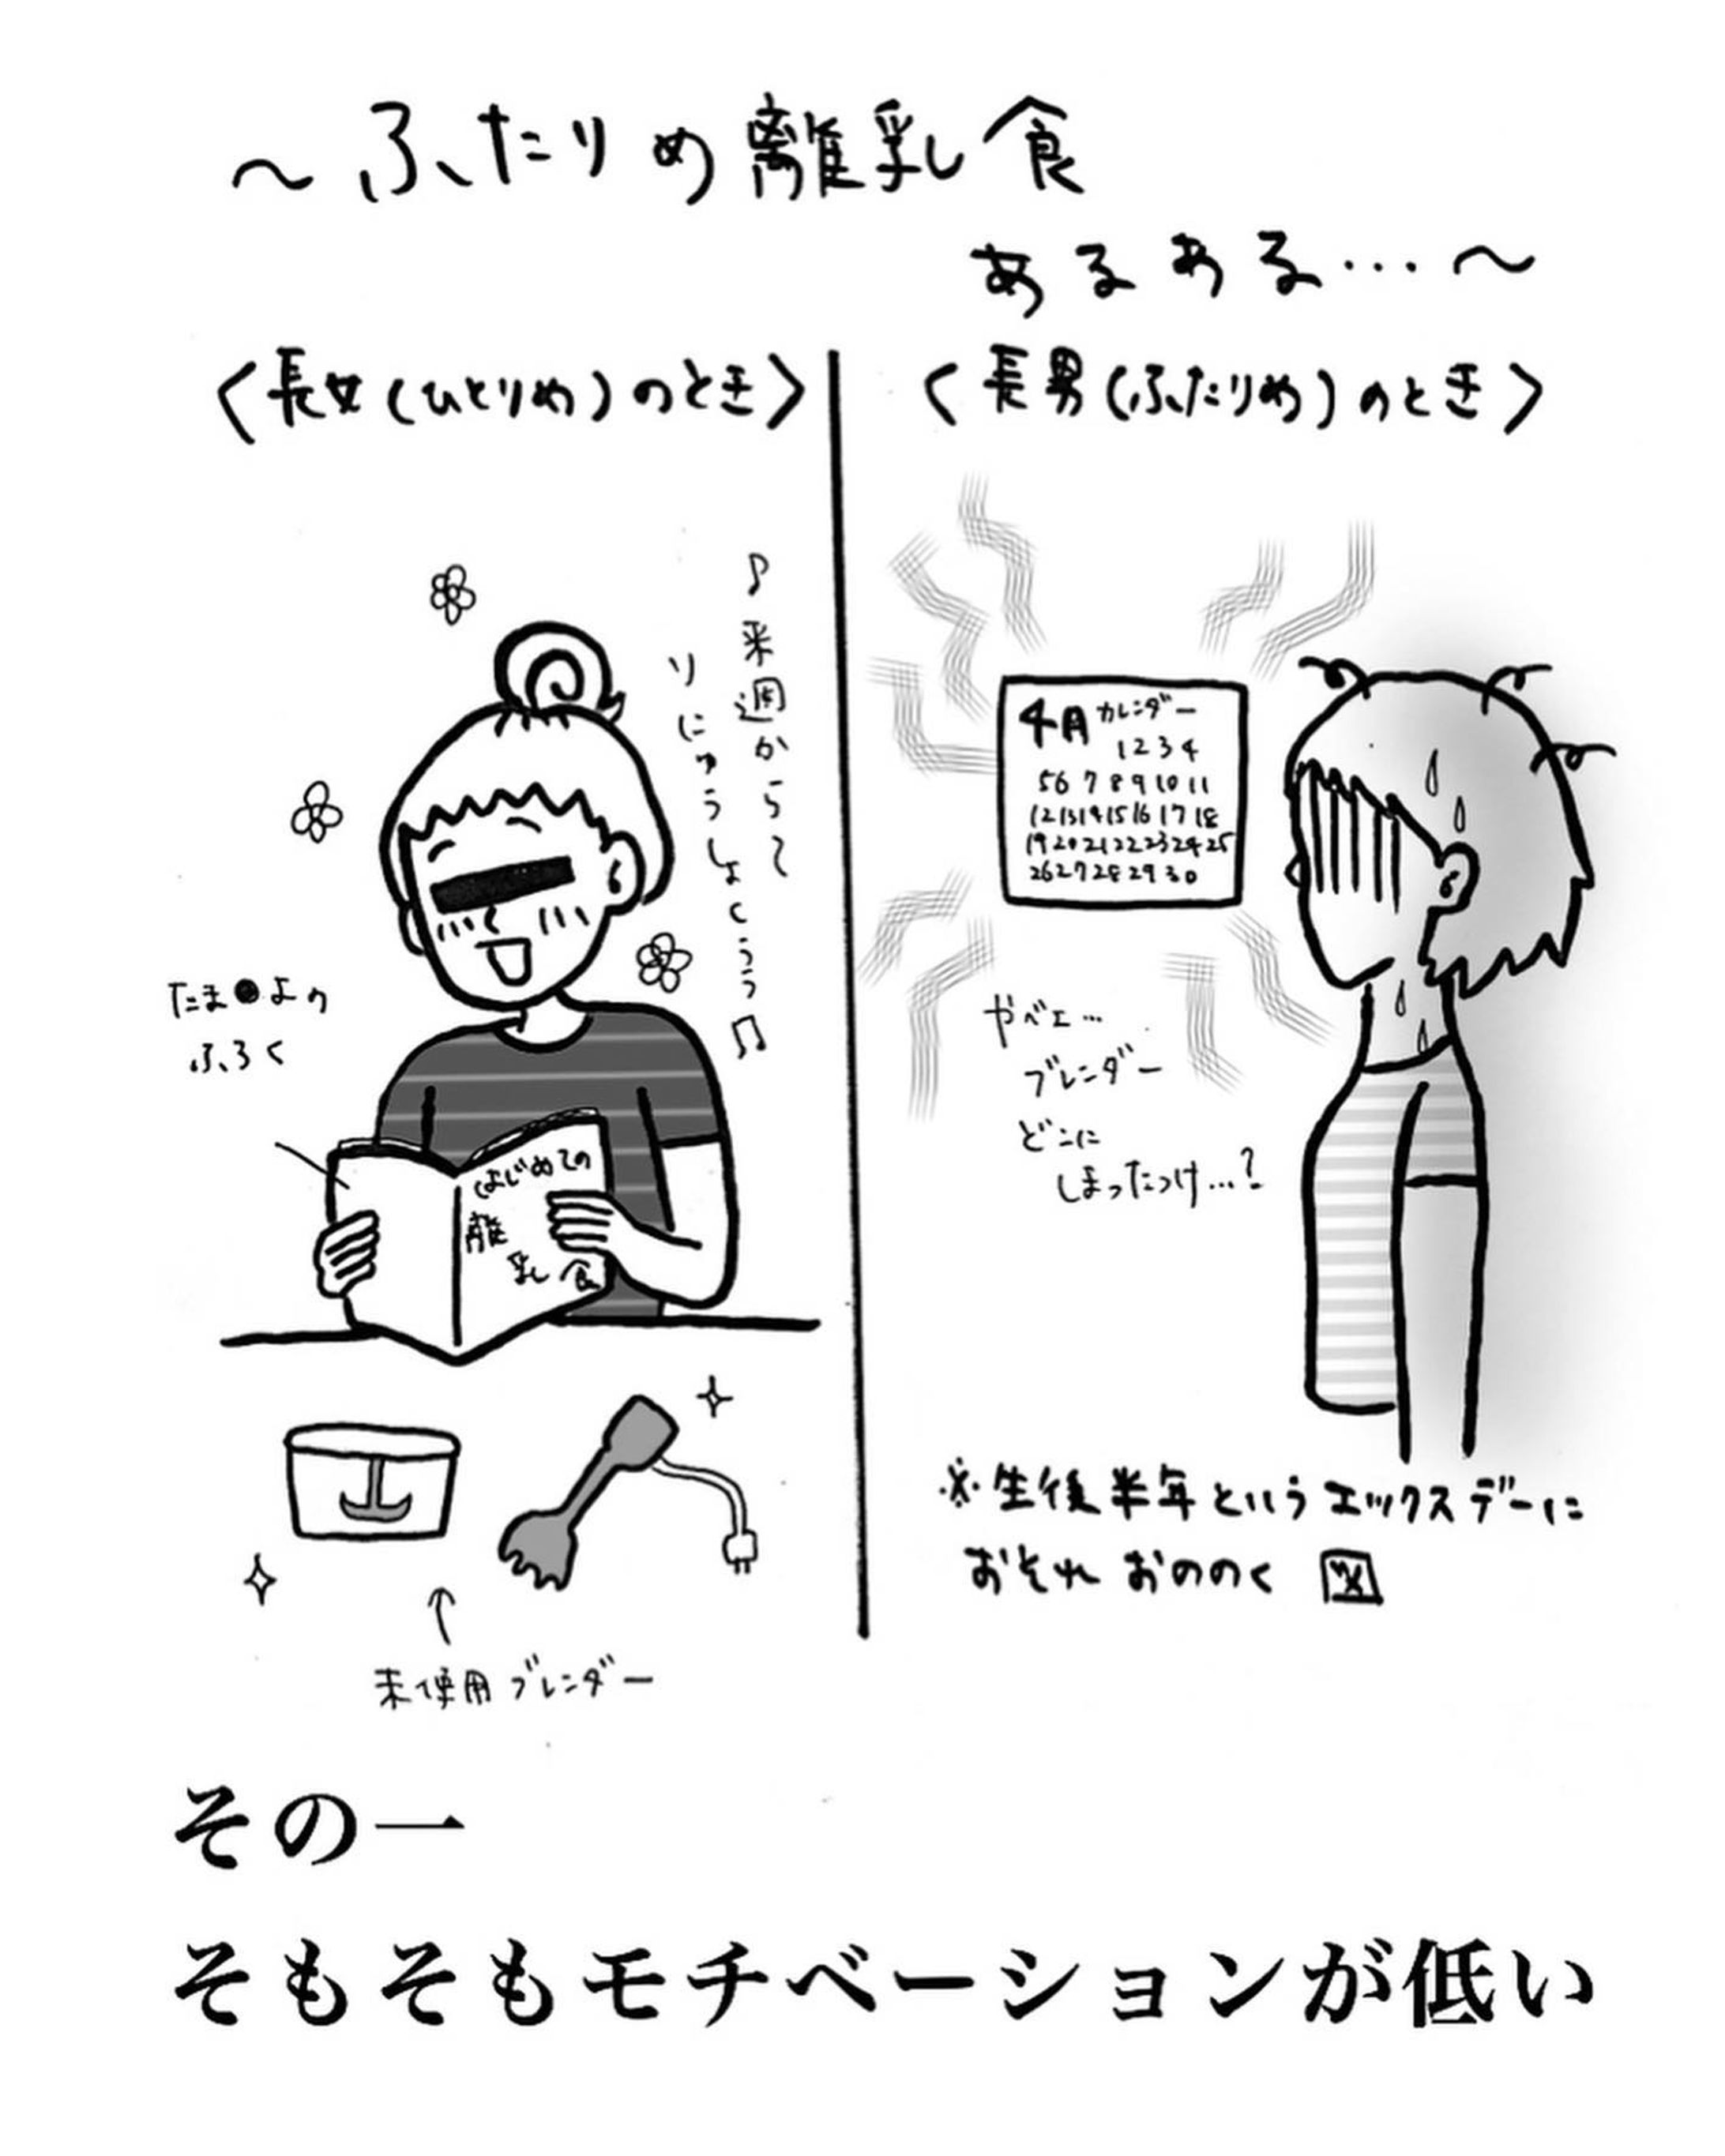 ～ふたりめ離乳食
あるある…～
〈長女(ひとりめ)のとき〉
♪来週から～
りにゅうしょくぅぅ♫
たま●よの
ふろく
はじめての
離
乳食
未使用ブレンダー
〈長男(ふたりめ)のとき〉
4月カレンダー
1 2 3 4
5 6 7 8 9 10 11
12 13 14 15 16 17 18
19 20 21 22 23 24 25
26 27 28 29 30
やべェ…
ブレンダー
どこに
しまったっけ…?
※生後半年というエックスデーに
おそれおののく図
その一
そもそもモチベーションが低い